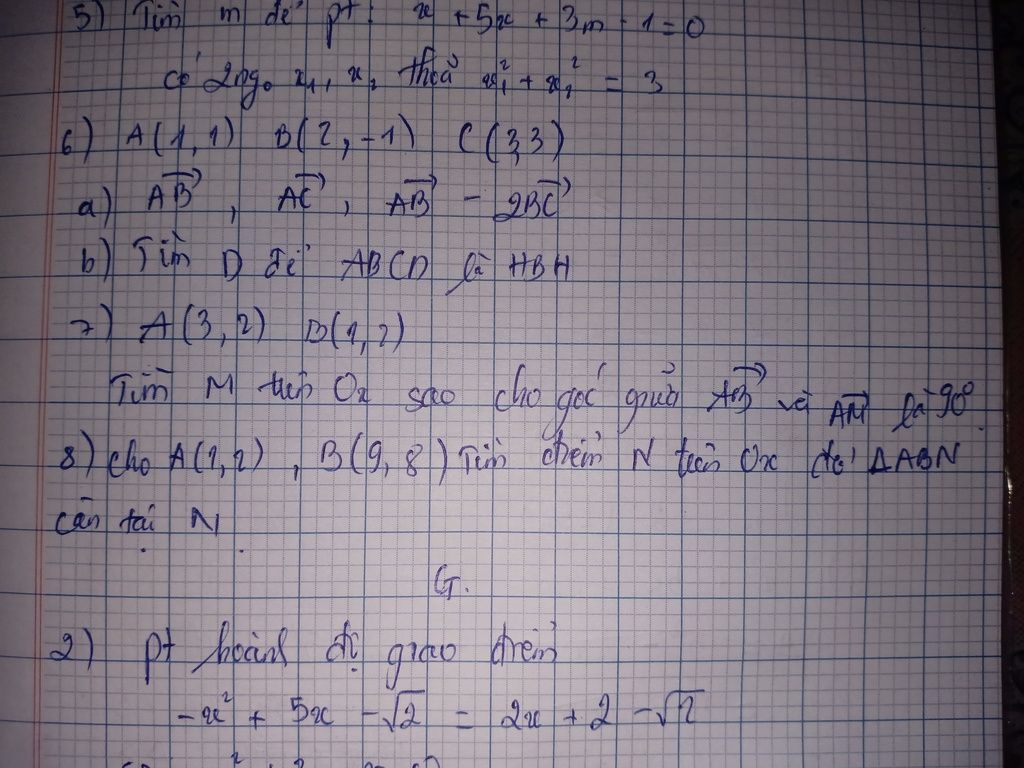 5) Tìm m để pt: x² + 5x + 3m - 1 = 0
có 2 ngo x₁, x₂ thoả x₁² + x₂² = 3
6) A(1,1) B(2,-1) C(3,3)
a) AB→, AC→, AB→ - 2BC→
b) Tìm D để ABCD là HBH
7) A(3,2) B(1,2)
Tìm M trên Ox sao cho góc giữa AB→ và AM→ là 90°
8) Cho A(1,2), B(9,8) Tìm điểm N trên Ox để ΔABN
cân tại N.
G.
2) pt hoành độ giao điểm
-x² + 5x - √2 = 2x + 2 - √2